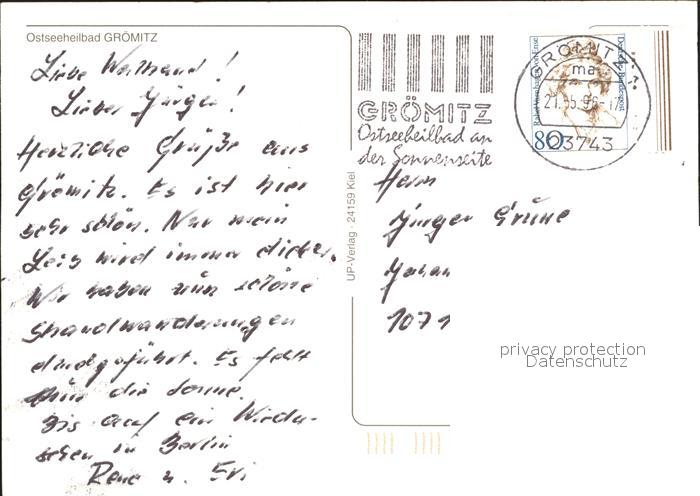 Ostseeheilbad GRÖMITZ
Liebe Waltraud!
Lieber Jürgen!
Herzliche Grüße aus
Grömitz. Es ist hier
sehr schön. Nur mein
Leib wird immer dicker.
Wir haben nun schöne
Strandwanderungen
durchgeführt. Es fehlt
nur die Sonne.
Bis auf ein Wieder-
sehen in Berlin
Rene u. Evi
UP-Verlag · 24159 Kiel
GRÖMITZ
Ostseeheilbad an
der Sonnenseite
GRÖMITZ 1
ma
21.-5.96-17
23743
Rahel Varnhagen von Ense
Deutsche Bundespost
80
Herrn
Jürgen Grüne
Johan
1071
privacy protection
Datenschutz